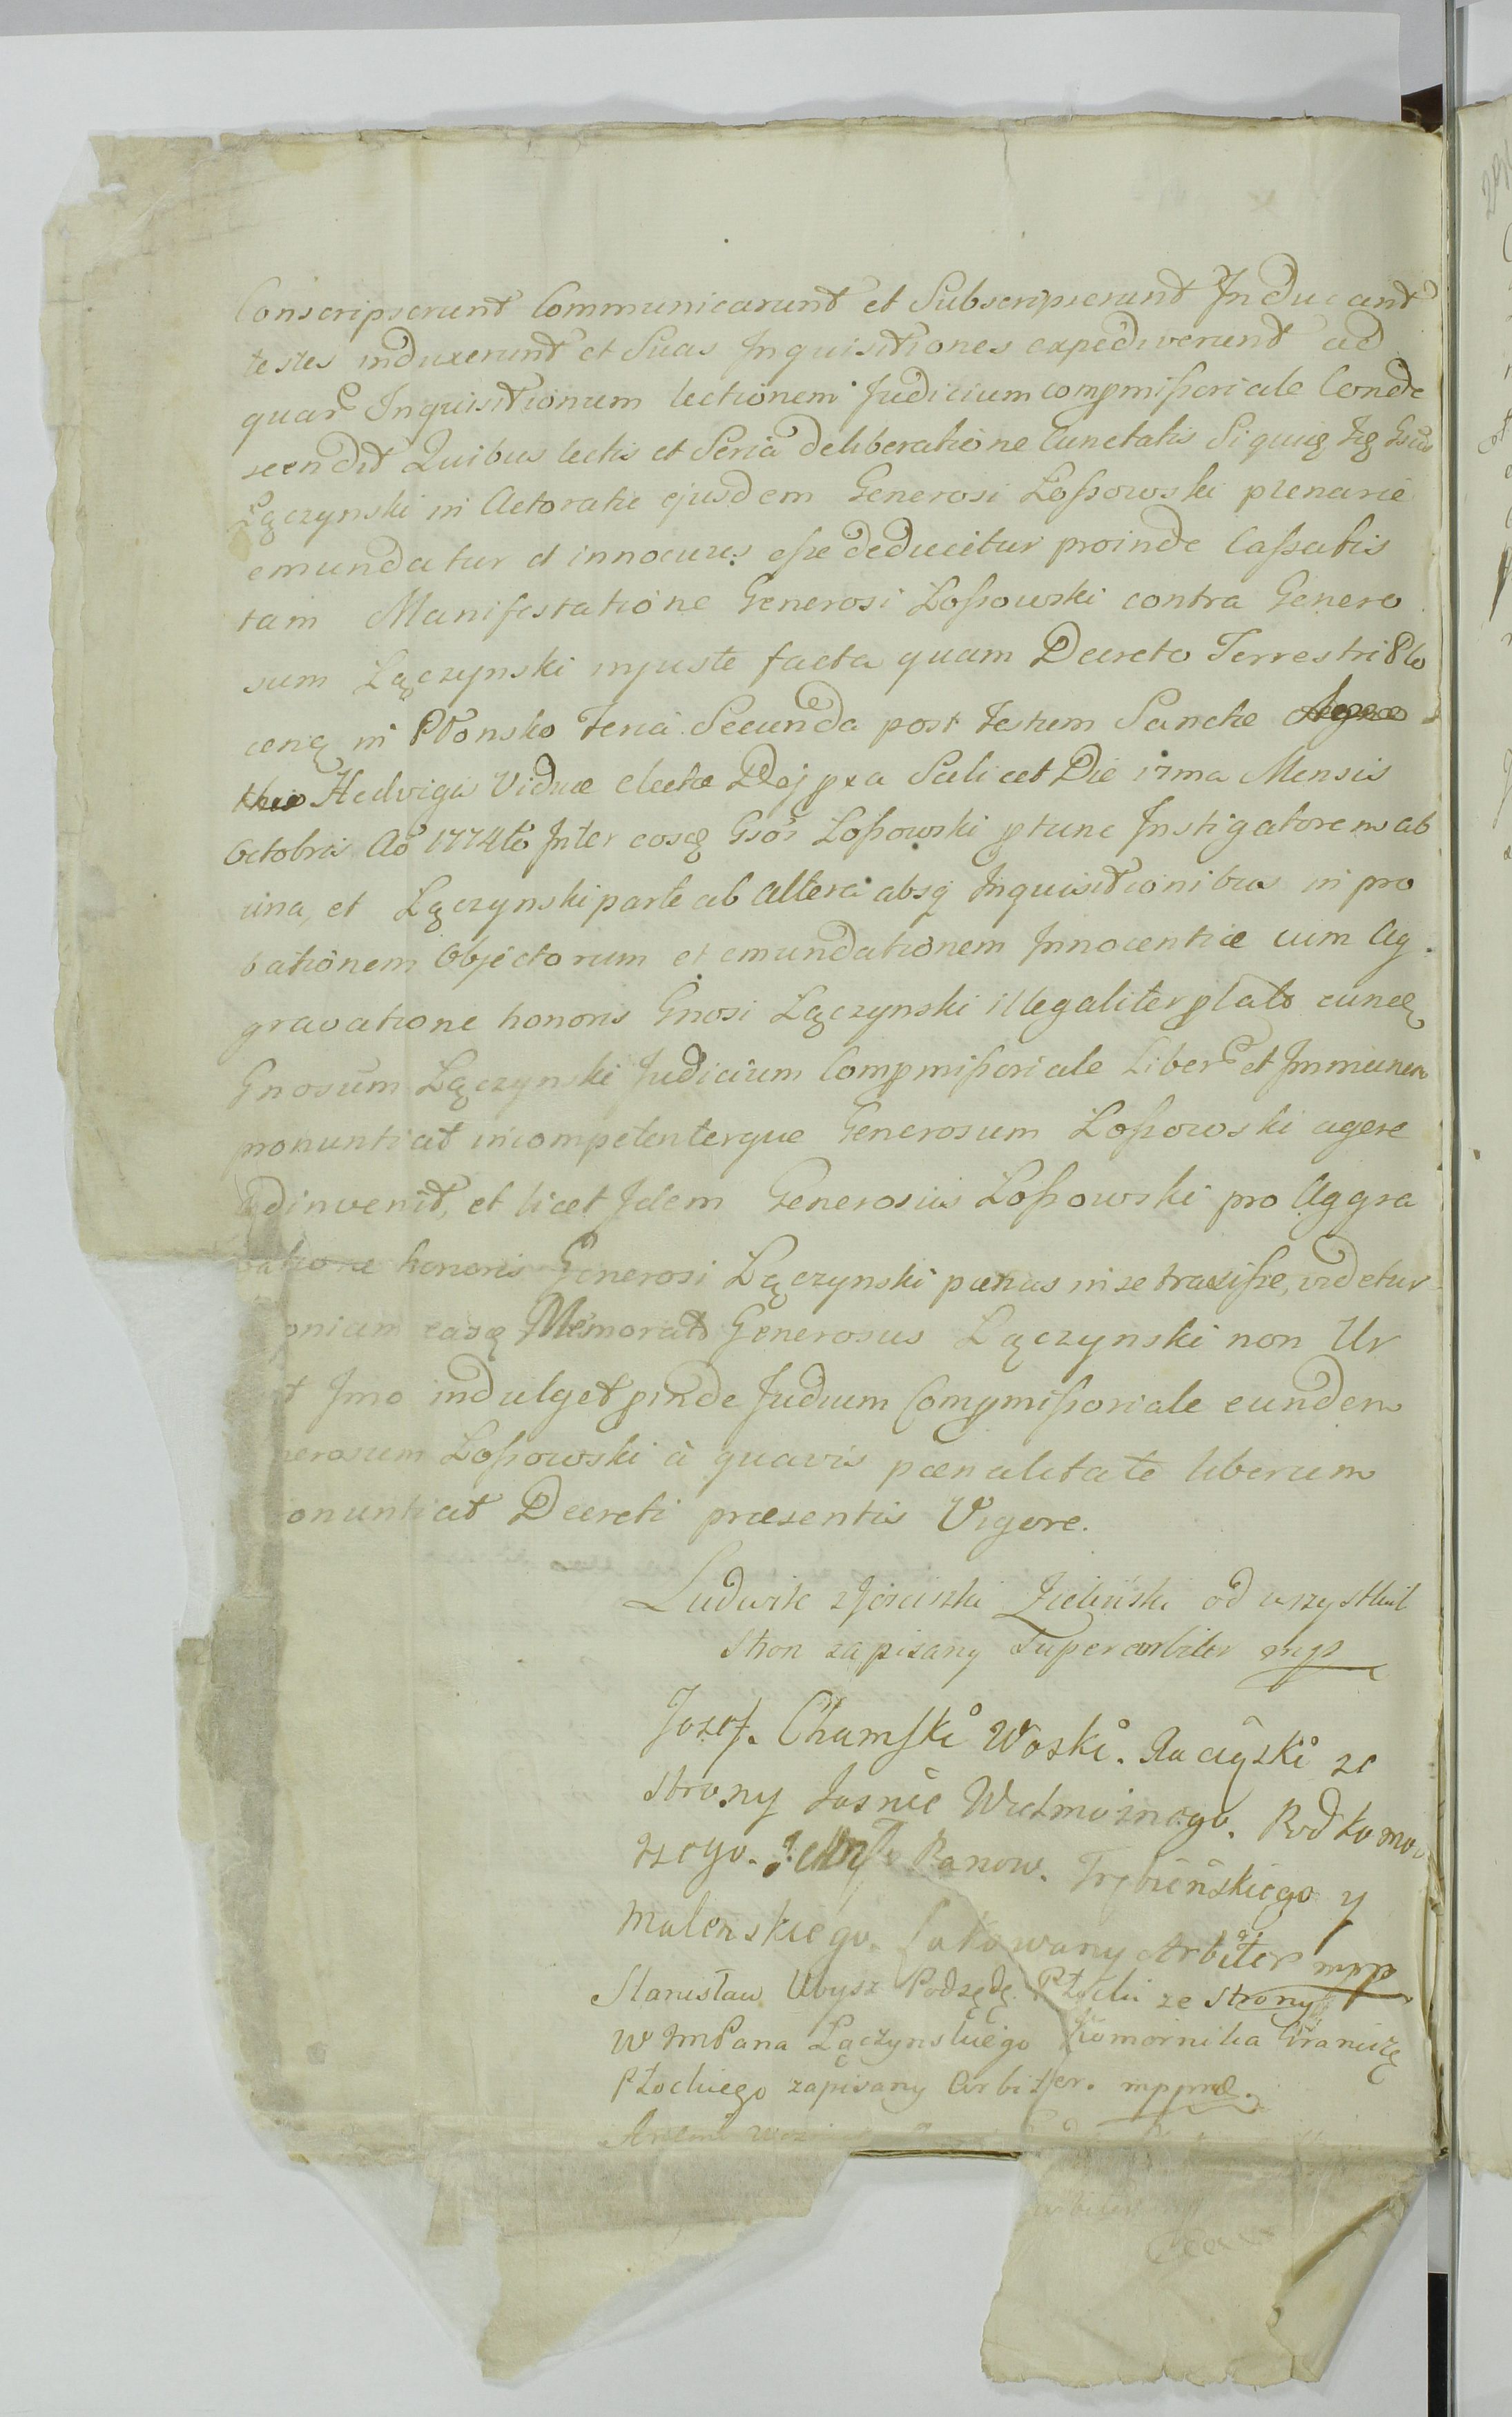 Conscripserunt Communicarunt et Subscripserunt Inducant
testes induxerunt et Suas Inquisitiones expediverunt ad
quar Inquisitionum lectionem Judicium compmißoriale Conde
scendit Quibus lectis et Seria deliberatione Cunctatis Siquiq
Łączynski in Actoratu ejusdem Generosi Loßowski plenarie
emundatur et innocuus eße deducitur proinde Caßatis
tam Manifestatione Generosi Loßowski contra Genero
sum Łączynski injuste facta quam Decreto Terrestri Plo
cenq in Płonsko Feria Secunda post Festum Sanctæ
Hedvigis Viduæ Electæ Scilicet Die 17ma Mensis
Octobris Ao 1774to Inter eosq Gsos Loßowski ptunc Instigatorem ab
una, et Łączynski parte ab altera absq Inquisitionibus in pro
bationem Objectorum et emundationem Innocentiæ cum Ag
gravatione honoris Gnosi Łączynski illegaliter plato eunq
Gnosum Łączynski Judicium Compmißoriale Liber et Immunem
pronuntiat incompetenterque Generosum Loßowski agere
adinvenit, et licet Idem Generosus Loßowski pro Aggra
vatione honoris Generosi Łączynski pœnas in se traxiße, videtur
oniam easq Memorat Generosus Łączynski non Ur
t Imo indulget pinde Judium Compmißoriale eundem
nerosum Loßowski à quavis pœnalitate liberum
onuntiat Decreti præsentis Vigore.
Ludwik Zieliński od wszystkich
Stron zapisany Superarbiter mp
Jozef. Chamski Woski. Raciązki ze
strony Jasnie Wielmoznego. Podkomo
rzego. Panow. Trębinskiego y
Malenskiego. Arbiter mpp
Stanisław Ubysz Podsędę. Płocki ze strony
W JmPana Łączynskiego Komornika Granicz
Płockiego zapisany Arbiter. mppr